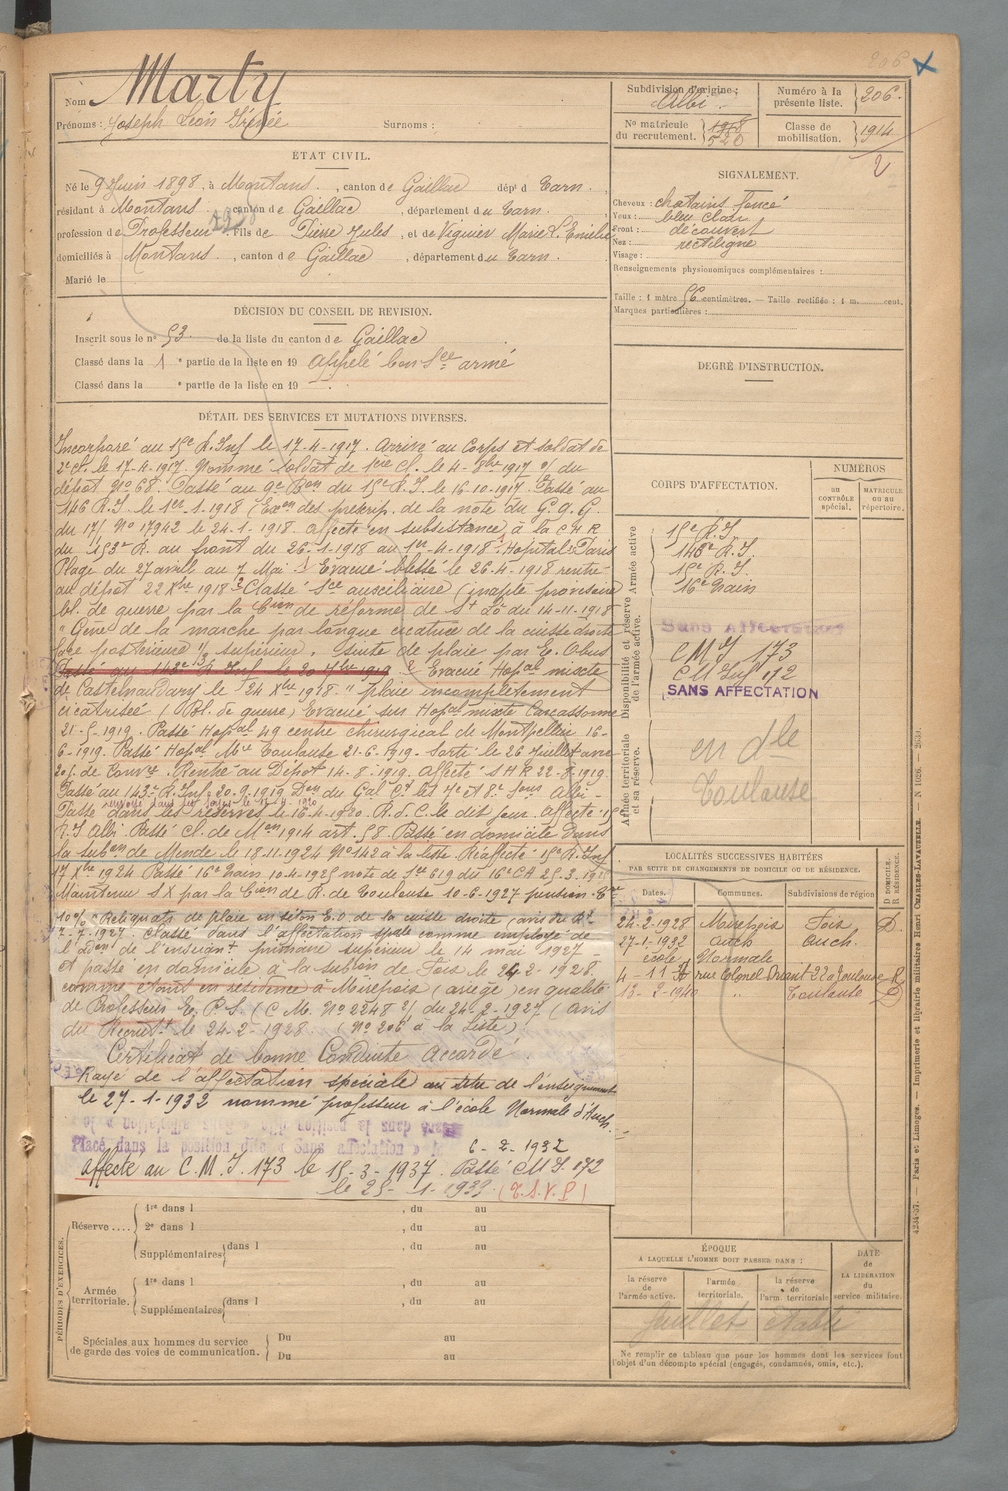 Nom Marty
Prénoms : Joseph Léon Irénée Surnoms :
Subdivision d'origine : Albi.
Numéro à la présente liste. 206.
No matricule du recrutement. 520
Classe de mobilisation. 1914
ETAT CIVIL.
Né le 9 Juin 1898, à Montans, canton de Gaillac dépt d Tarn.
résidant à Montans, canton de Gaillac, département du Tarn.
profession de Professeur fils de Pierre Jules, et de Viguier Marie L. Emilie
domiciliés à Montans, canton de Gaillac, département du Tarn.
Marié le
DÉCISION DU CONSEIL DE REVISION.
Inscrit sous le no 53 de la liste du canton de Gaillac
Classé dans la 1 e partie de la liste en 19 Appelé bon Sce armé
Classé dans la e partie de la liste en 19
DÉTAIL DES SERVICES ET MUTATIONS DIVERSES.
Incorporé au 15e R. Inf le 17-4-1917. Arrivé au Corps et soldat de
2e cl. le 17-4-1917. Nommé soldat de 1ère cl. le 4-8bre 1917 du
dépôt No 68. Passé au 9e Bon du 15e R.I. le 16-10-1917. Passé au
146 R.I. le 1er-1-1918 (Exon des prescrip. de la note du G.Q.G.
du 17/ No 17942 le 24-1-1918. affecté en subsistance à la C.H.R
du 153e R. au front du 26-1-1918 au 1er-4-1918. Hopital Paris
Plage du 27 avril au 7 Mai Evacué blessé le 26-4-1918 rentré
au dépôt 22 Xbre 1918 Classé Sce auxiliaire (inapte provisoire
bl. de guerre par la Cion de réforme de St Lô du 14-11-1918
" Gêne de la marche par longue cicatrice de la cuisse droite
face postérieure 1/3 supérieur. Suite de plaie par E. Obus
Passé au 143e R. Inf. le 20 7bre 1919 Evacué Hopal mixte
de Castelnaudary le 24 Xbre 1918 " plaie incomplètement
cicatrisée (Bl. de guerre) Evacué sur Hopal mixte Carcassonne
21-5-1919. Passé Hopal 49 centre chirurgical de Montpellier 16-
6-1919. Passé Hopal Mre Toulouse 21-6-1919. Sorti le 26 Juillet avec
20j. de Convce. Rentré au Dépôt 14-8-1919. Affecté S H R 22-8-1919.
Passé au 143e R. Inf. 20-9-1919 Don du Gal Ct les
Passé dans les réserves le 16-4-1920. R.d.C. le dit jour. Affecté 15
R.I Albi Passé cl. de Mon 1914 art. 58 Passé en domicile dans
la subon de Mende le 18-11-1924 No 142 à la liste Réaffecté 15e R. Inf
17 Xbre 1924 Passé 16e Train 10-4-1925 note de Sce 619 du 16e CA 25-3-19
Maintenu SX par la Cion de R. de Toulouse 10-6-1927 pension
10% Reliquats de plaie en séton E.O de la cuisse droite (avis du
7-7-1927. Classé dans l'affectation spale comme employé de
l'Aon de l'enseignt primaire supérieur le 14 mai 1927
et passé en domicile à la subion de Foix le 24-2-1928.
comme étant en résidence à Mirepoix (ariège) en qualité
de Professeur E.P.S. (C.M. No 2248 du 24-2-1927 (avis
du Recrutt le 24-2-1928. (No 206 à la Liste)
Certificat de bonne Conduite Accordé.
Rayé de l'affectation spéciale au titre de l'enseignement
le 27-1-1932 nommé professeur à l'école Normale d'Auch.
Placé dans la position dite « Sans affectation » le 6-2-1932
affecté au C.M.I. 173 le 15-3-1937. Passé CMI. 172
le 25-1-1939. (T.S.V.P)
SIGNALEMENT.
Cheveux : chatains foncé
Yeux : bleu clair
Front : découvert
Nez : rectiligne
Visage :
Renseignements physionomiques complémentaires :
Taille : 1 mètre 56 centimètres. — Taille rectifiée : 1 m. cent.
Marques particulières :
DEGRÉ D'INSTRUCTION.
CORPS D'AFFECTATION.
NUMÉROS
au CONTRÔLE spécial.
MATRICULE ou au répertoire.
Armée active
15e R.I.
146e R.I.
15e R.I.
16e Train
Disponibilité et réserve de l'armée active.
Sans Affectation
CMI 173
CM Inf 172
SANS AFFECTATION
Armée territoriale et sa réserve.
en dle
Toulouse
LOCALITÉS SUCCESSIVES HABITÉES
PAR SUITE DE CHANGEMENTS DE DOMICILE OU DE RÉSIDENCE.
Dates. Communes. Subdivisions de région
D DOMICILE. R RÉSIDENCE.
24-2-1928 Mirepoix Foix D.
27-1-1932 Auch Auch.
école Normale
rue Colonel Toulouse R
13-2-1940 " Toulouse D
PÉRIODES D'EXERCICES.
Réserve....
1re dans l , du au
2e dans l , du au
Supplémentaires dans l , du au
Armée territoriale.
1re dans l , du au
Supplémentaires dans l , du au
Spéciales aux hommes du service de garde des voies de communication.
Du au
Du au
ÉPOQUE
A LAQUELLE L'HOMME DOIT PASSER DANS :
la réserve de l'armée active.
l'armée territoriale.
la réserve de l'arm. territoriale
DATE de LA LIBÉRATION du service militaire.
feuillet établi
Ne remplir ce tableau que pour les hommes dont les services font
l'objet d'un décompte spécial (engagés, condamnés, omis, etc.).
Paris et Limoges. — Imprimerie et librairie militaires Henri CHARLES-LAVAUZELLE.